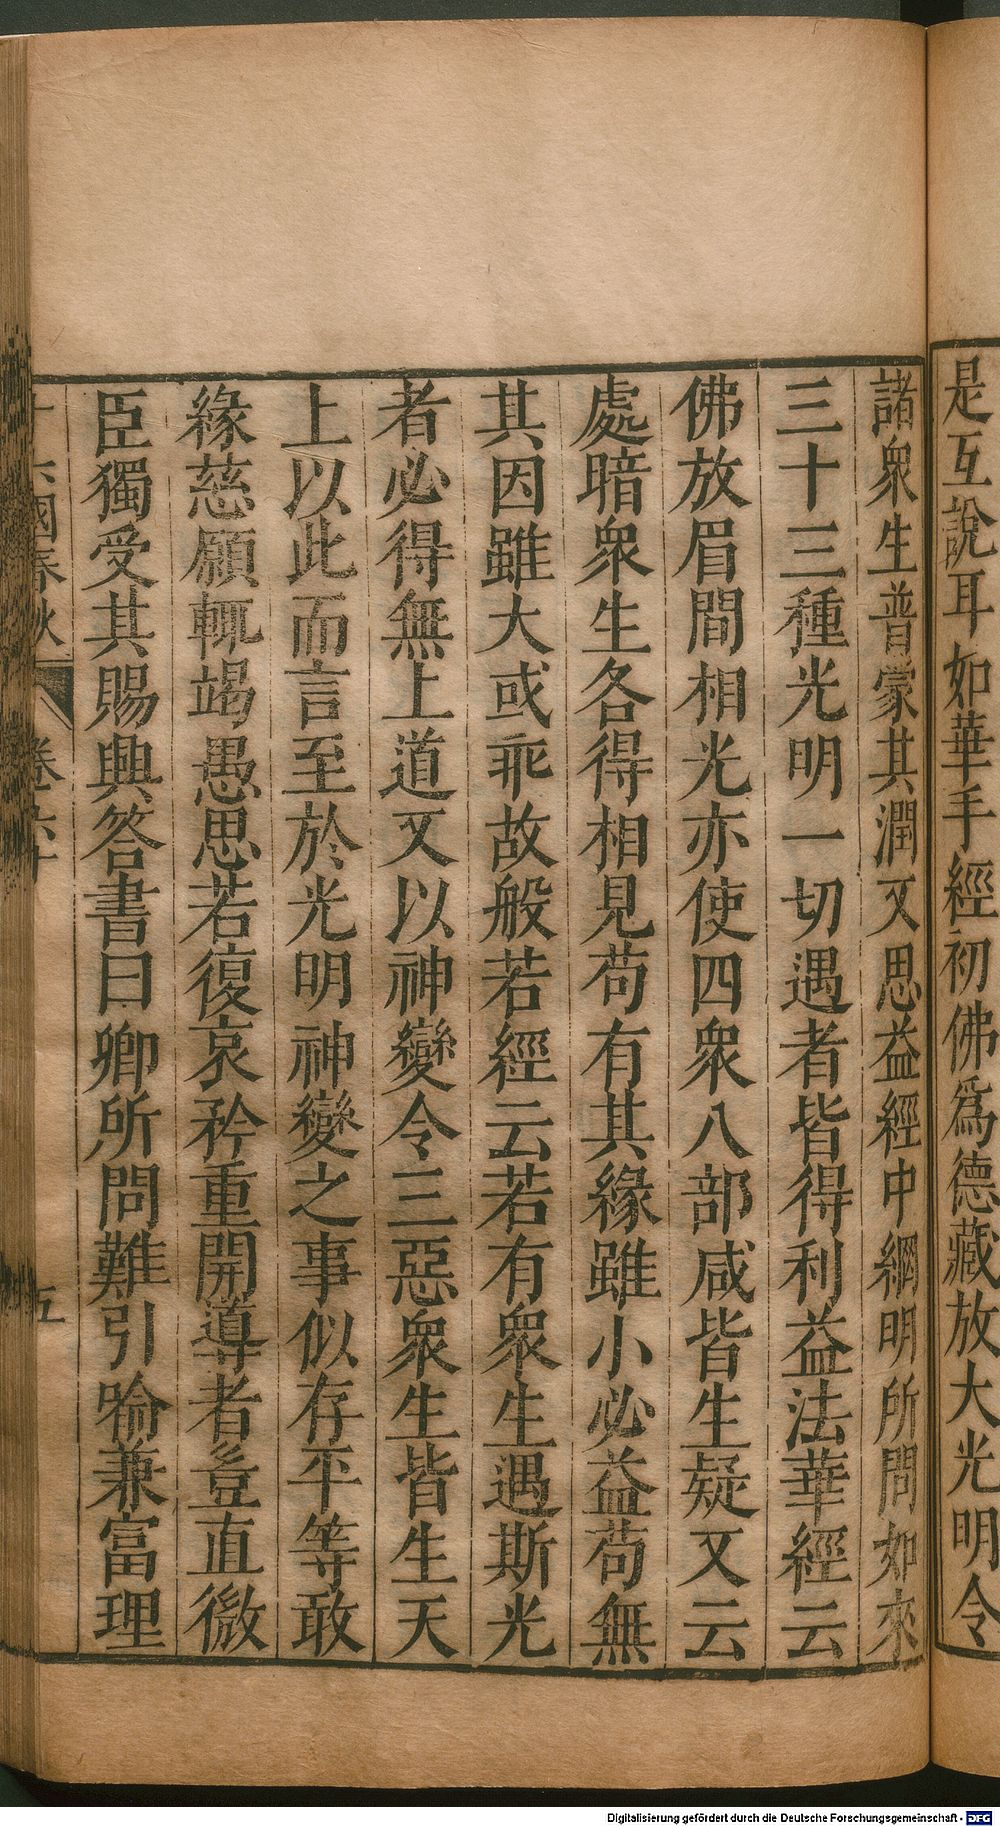 是互說耳如華手經初佛爲德藏放大光明令
諸衆生普蒙其潤又思益經中網明所問如來
三十三種光明一切遇者皆得利益法華經云
佛放眉間相光亦使四衆八部咸皆生疑又云
處暗衆生各得相見苟有其緣雖小必益苟無
其因雖大或乖故般若經云若有衆生遇斯光
者必得無上道又以神變令三惡衆生皆生天
上以此而言至於光明神變之事似存平等敢
緣慈願輒竭愚思若復哀矜重開導者豈直微
臣獨受其賜興答書曰卿所問難引喻兼富理
十六國春秋 卷六十 五
Digitalisierung gefördert durch die Deutsche Forschungsgemeinschaft - DFG